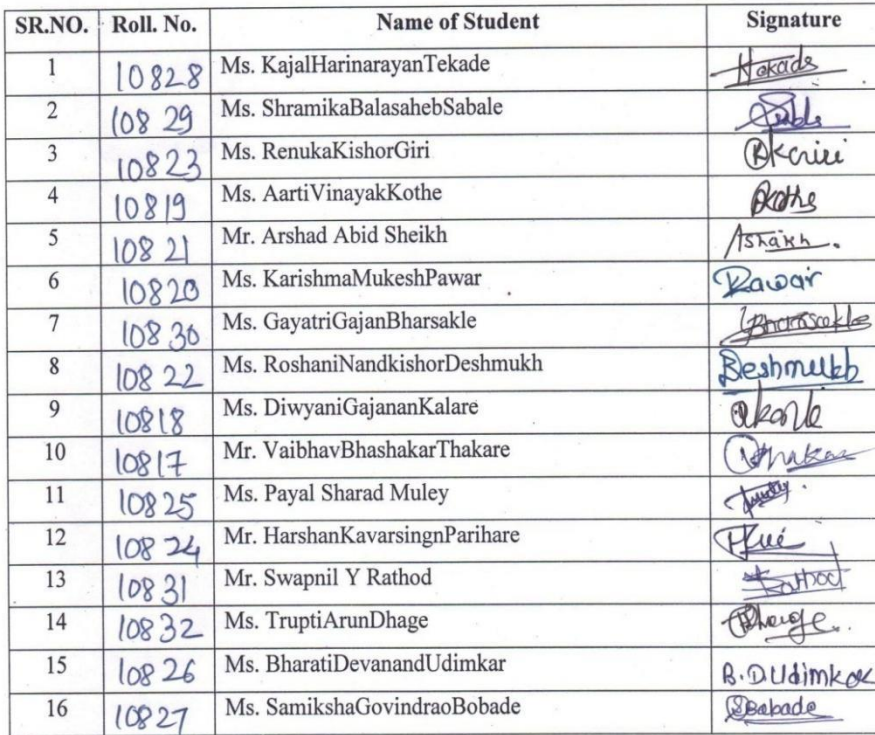 SR.NO. Roll. No. Name of Student Signature
1 10828 Ms. KajalHarinarayanTekade Tekade
2 10829 Ms. ShramikaBalasahebSabale
3 10823 Ms. RenukaKishorGiri
4 10819 Ms. AartiVinayakKothe
5 10821 Mr. Arshad Abid Sheikh
6 10820 Ms. KarishmaMukeshPawar
7 10830 Ms. GayatriGajanBharsakle
8 10822 Ms. RoshaniNandkishorDeshmukh Deshmukh
9 10818 Ms. DiwyaniGajananKalare
10 10817 Mr. VaibhavBhashakarThakare
11 10825 Ms. Payal Sharad Muley
12 10824 Mr. HarshanKavarsingnParihare
13 10831 Mr. Swapnil Y Rathod Rathod
14 10832 Ms. TruptiArunDhage
15 10826 Ms. BharatiDevanandUdimkar B.D.Udimkar
16 10827 Ms. SamikshaGovindraoBobade SBobade